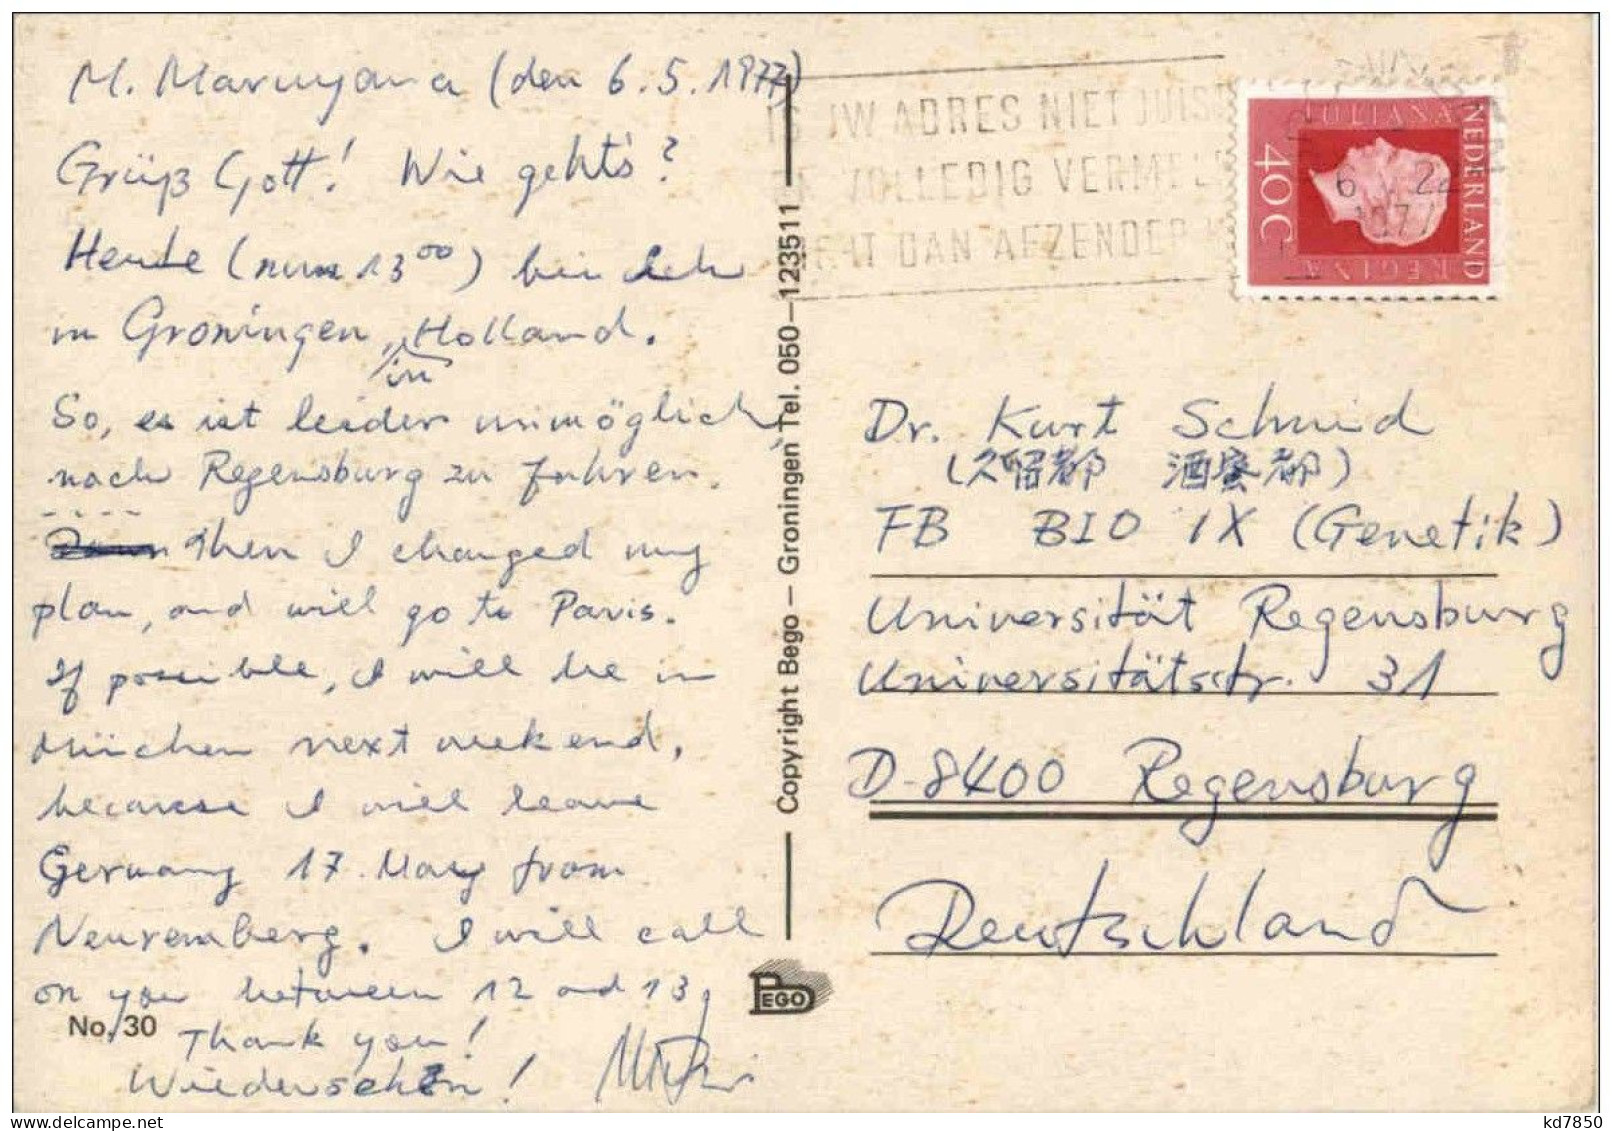 M. Maruyama (den 6.5.1977)
Grüß Gott! Wie geht's?
Heute (nun 13⁰⁰) bin ich
in Groningen, in Holland.
So, es ist leider unmöglich
nach Regensburg zu fahren.
Then I changed my
plan, and will go to Paris.
If possible, I will be in
München next weekend,
because I will leave
Germany 17. May from
Neuremberg. I will call
on you between 12 and 13,
Thank you!
Wiedersehen!
No. 30
Copyright Bego – Groningen Tel. 050–123511
BEGO
IS UW ADRES NIET JUIST
OF VOLLEDIG VERMELD
DAN AFZENDER
6 V 22
1977
JULIANA
REGINA
NEDERLAND
40C
Dr. Kurt Schmid
(久留都 酒蜜都)
FB BIO IX (Genetik)
Universität Regensburg
Universitätsstr. 31
D-8400 Regensburg
Deutschland
kd7850